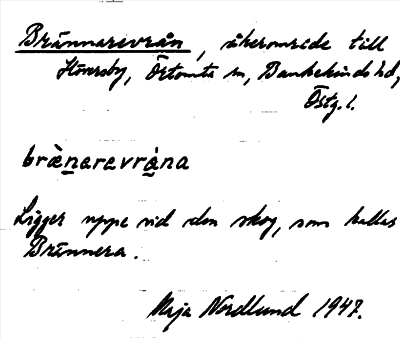 Brännarevrån, åkerområde till
Hömsby, Örtomta sn, Bankekinds hd,
Östg. l.
brænarevråna
Ligger uppe vid den skog, som kallas
Brännera.
Maja Nordlund 1947.